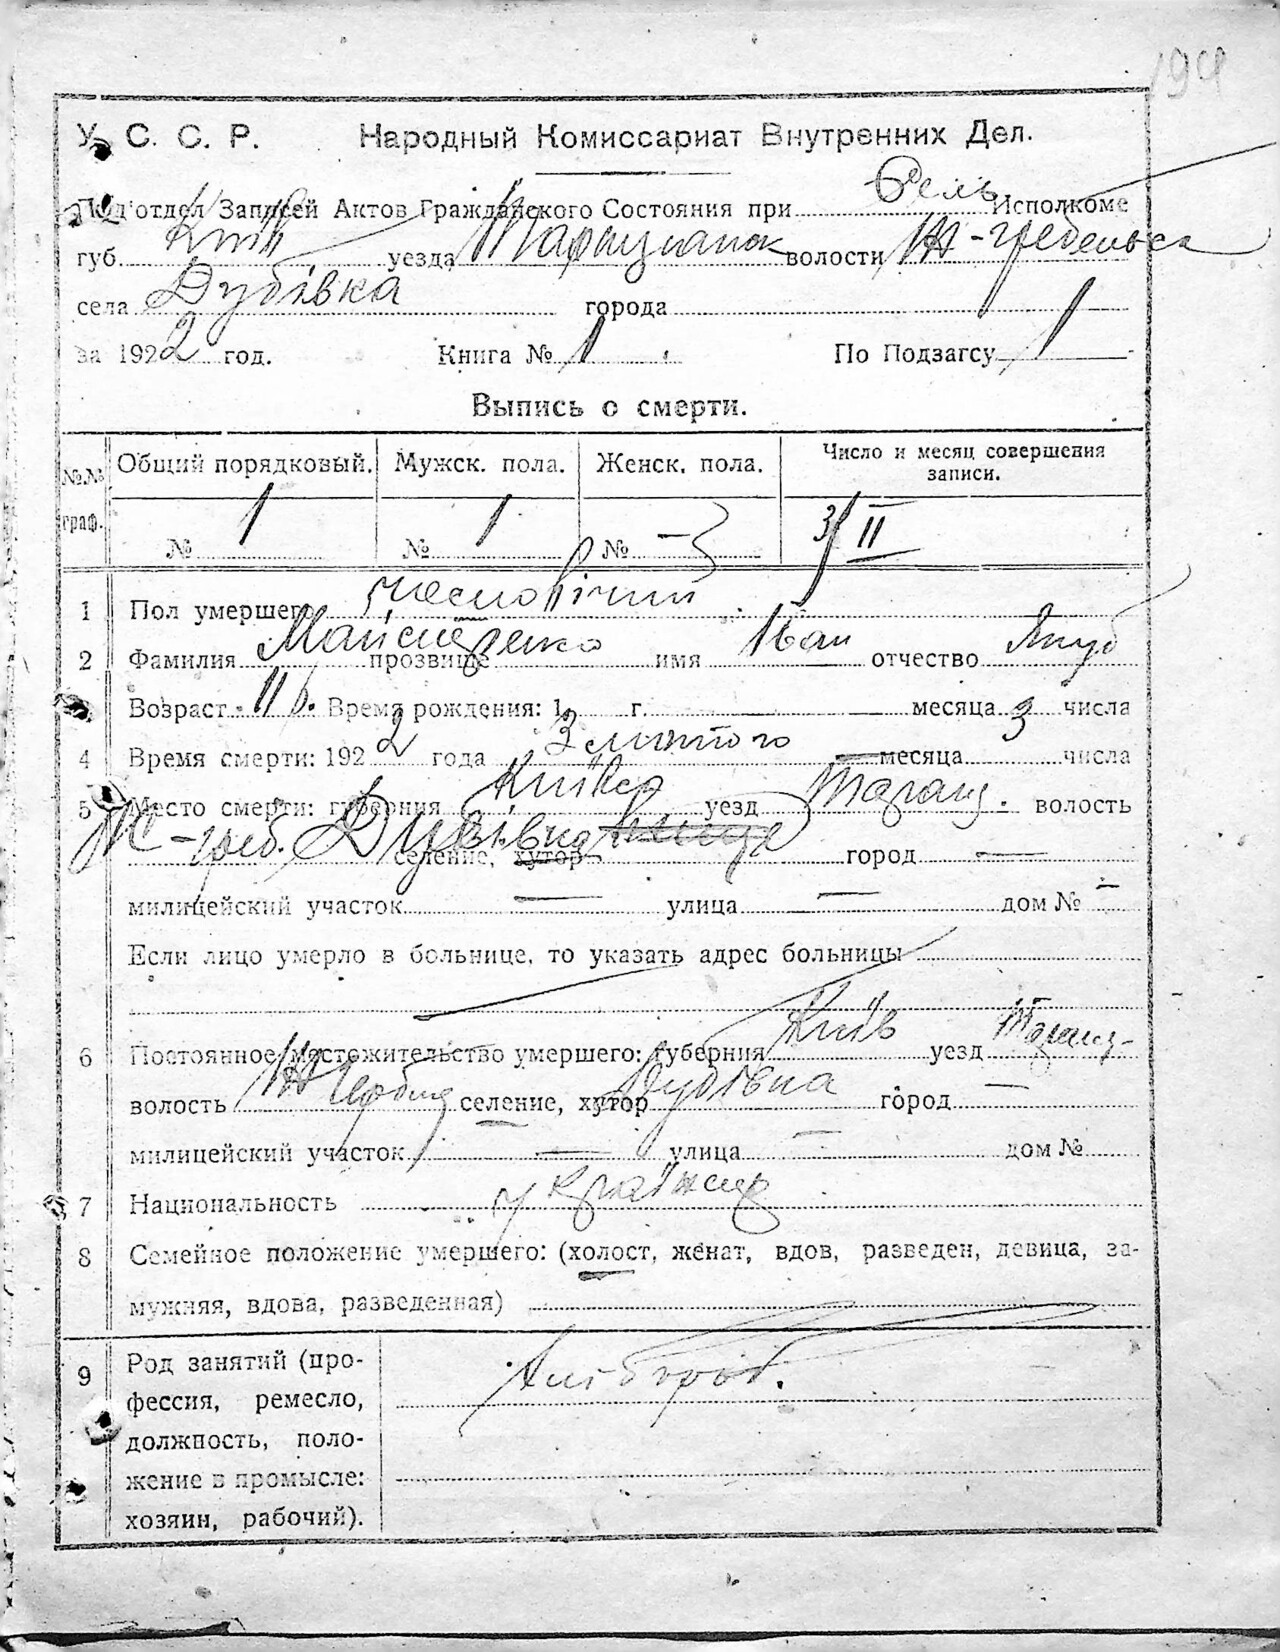 194
У. С. С. Р. Народный Комиссариат Внутренних Дел.
Под'отдел Записей Актов Гражданского Состояния при Исполкоме
губ. Київ уезда Таращанск волости Ж-гребельск
села Дубівка города
за 1922 год. Книга № 1 По Подзагсу 1
Выпись о смерти.
№№ граф. Общий порядковый. Мужск. пола. Женск. пола. Число и месяц совершения записи.
№ 1 № 1 № — 3/II
1 Пол умершего
2 Фамилия прозвище имя Іван отчество Якуб
Возраст 11 Время рождения: 1 г. месяца 3 числа
4 Время смерти: 1922 года 3 лютого — месяца числа
5 Место смерти: губерния Київск уезд Таращ. волость
Ж-греб. Дубівка селение, хутор город —
милицейский участок — улица — дом № —
Если лицо умерло в больнице, то указать адрес больницы
6 Постоянное местожительство умершего: губерния Київ уезд Таращ-
волость селение, хутор Дубівка город —
милицейский участок — улица — дом №
7 Национальность українец
8 Семейное положение умершего: (холост, женат, вдов, разведен, девица, за-
мужняя, вдова, разведенная)
9 Род занятий (про-
фессия, ремесло,
должность, поло-
жение в промысле:
хозяин, рабочий).
Хлібороб.